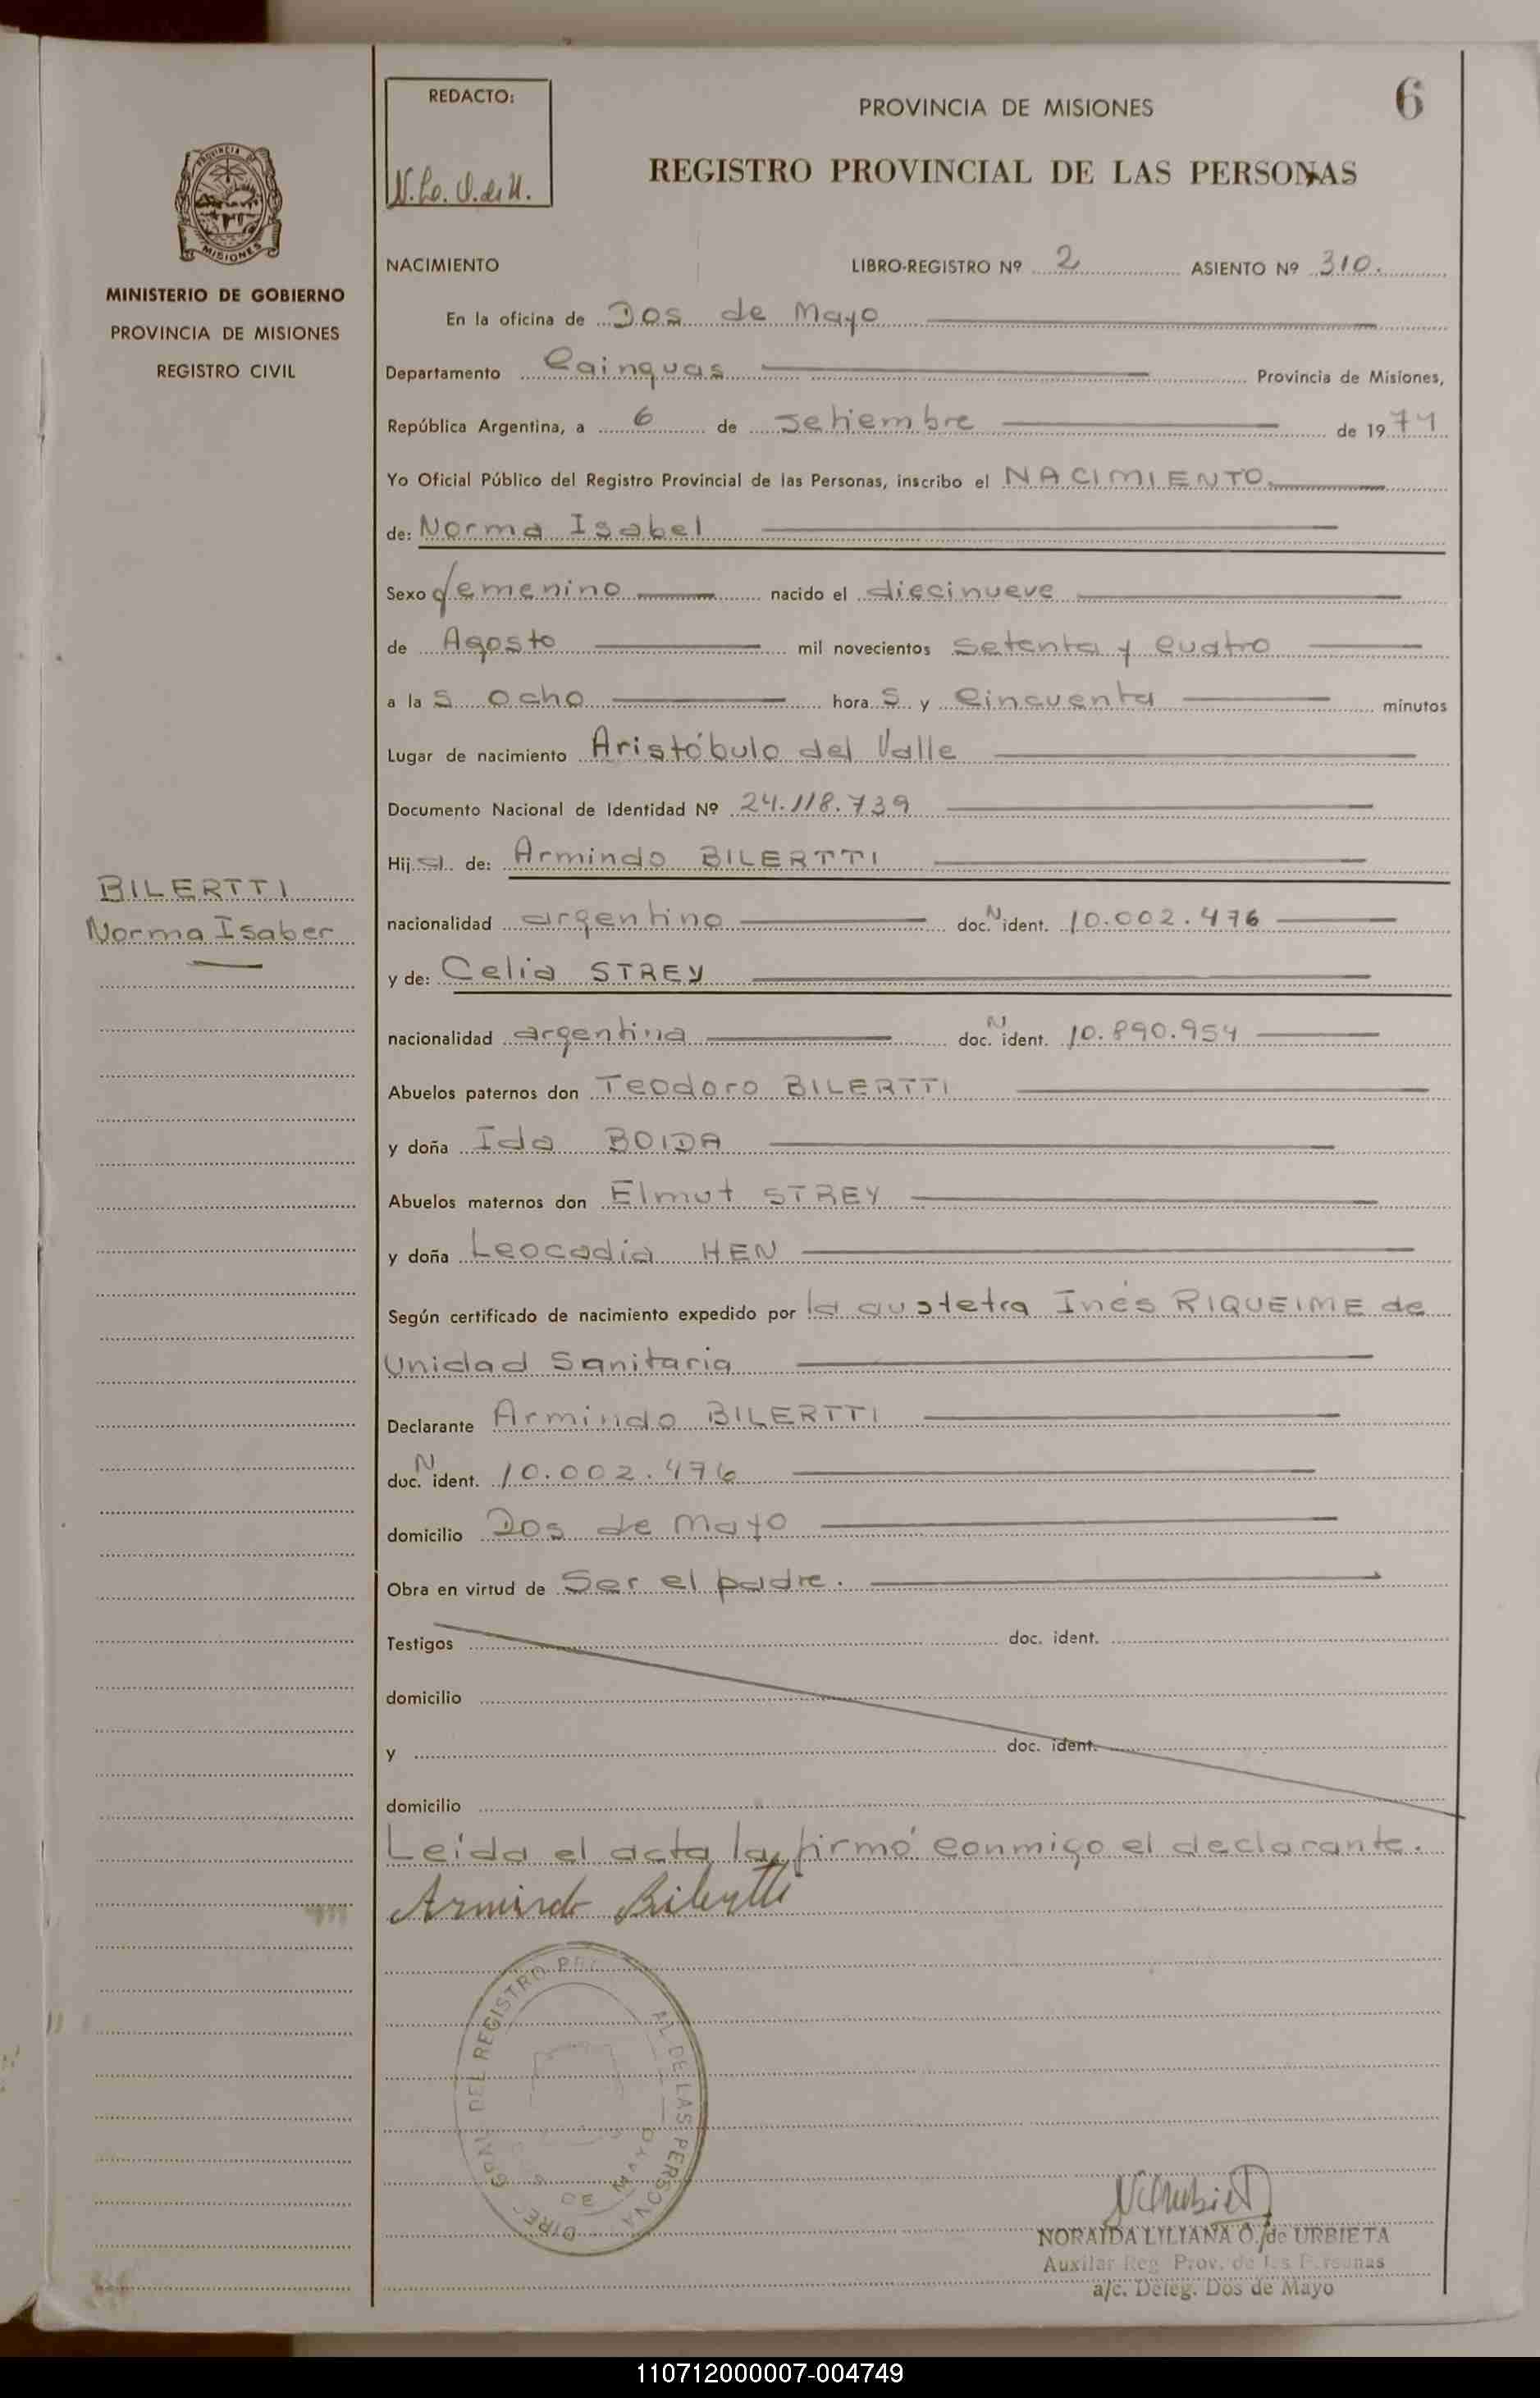 6
REDACTO:
N.L.O. de U.
PROVINCIA DE MISIONES
REGISTRO PROVINCIAL DE LAS PERSONAS
PROVINCIA DE
MISIONES
MINISTERIO DE GOBIERNO
PROVINCIA DE MISIONES
REGISTRO CIVIL
BILERTTI
Norma Isaber
NACIMIENTO LIBRO-REGISTRO Nº 2 ASIENTO Nº 310.
En la oficina de Dos de Mayo
Departamento Cainguas Provincia de Misiones,
República Argentina, a 6 de setiembre de 1974
Yo Oficial Público del Registro Provincial de las Personas, inscribo el NACIMIENTO
de: Norma Isabel
Sexo femenino nacido el diecinueve
de Agosto mil novecientos setenta y cuatro
a la s ocho hora s y cincuenta minutos
Lugar de nacimiento Aristóbulo del Valle
Documento Nacional de Identidad Nº 24.118.739
Hij a de: Armindo BILERTTI
nacionalidad argentino doc. N ident. 10.002.476
y de: Celia STREY
nacionalidad argentina doc. N ident. 10.890.954
Abuelos paternos don Teodoro BILERTTI
y doña Ida BOIDA
Abuelos maternos don Elmut STREY
y doña Leocadia HEN
Según certificado de nacimiento expedido por la austetra Inés RIQUEIME de
Unidad Sanitaria
Declarante Armindo BILERTTI
doc. N ident. 10.002.476
domicilio Dos de Mayo
Obra en virtud de Ser el padre.
Testigos doc. ident.
domicilio
y doc. ident.
domicilio
Leída el acta la firmó conmigo el declarante.
Armindo Bilertti
DIREC GRAL DEL REGISTRO PR AL DE LAS PERSONA
DE MAYO
NORAIDA LILIANA O. de URBIETA
Auxilar Reg. Prov. de las Personas
a/c. Deleg. Dos de Mayo
110712000007-004749